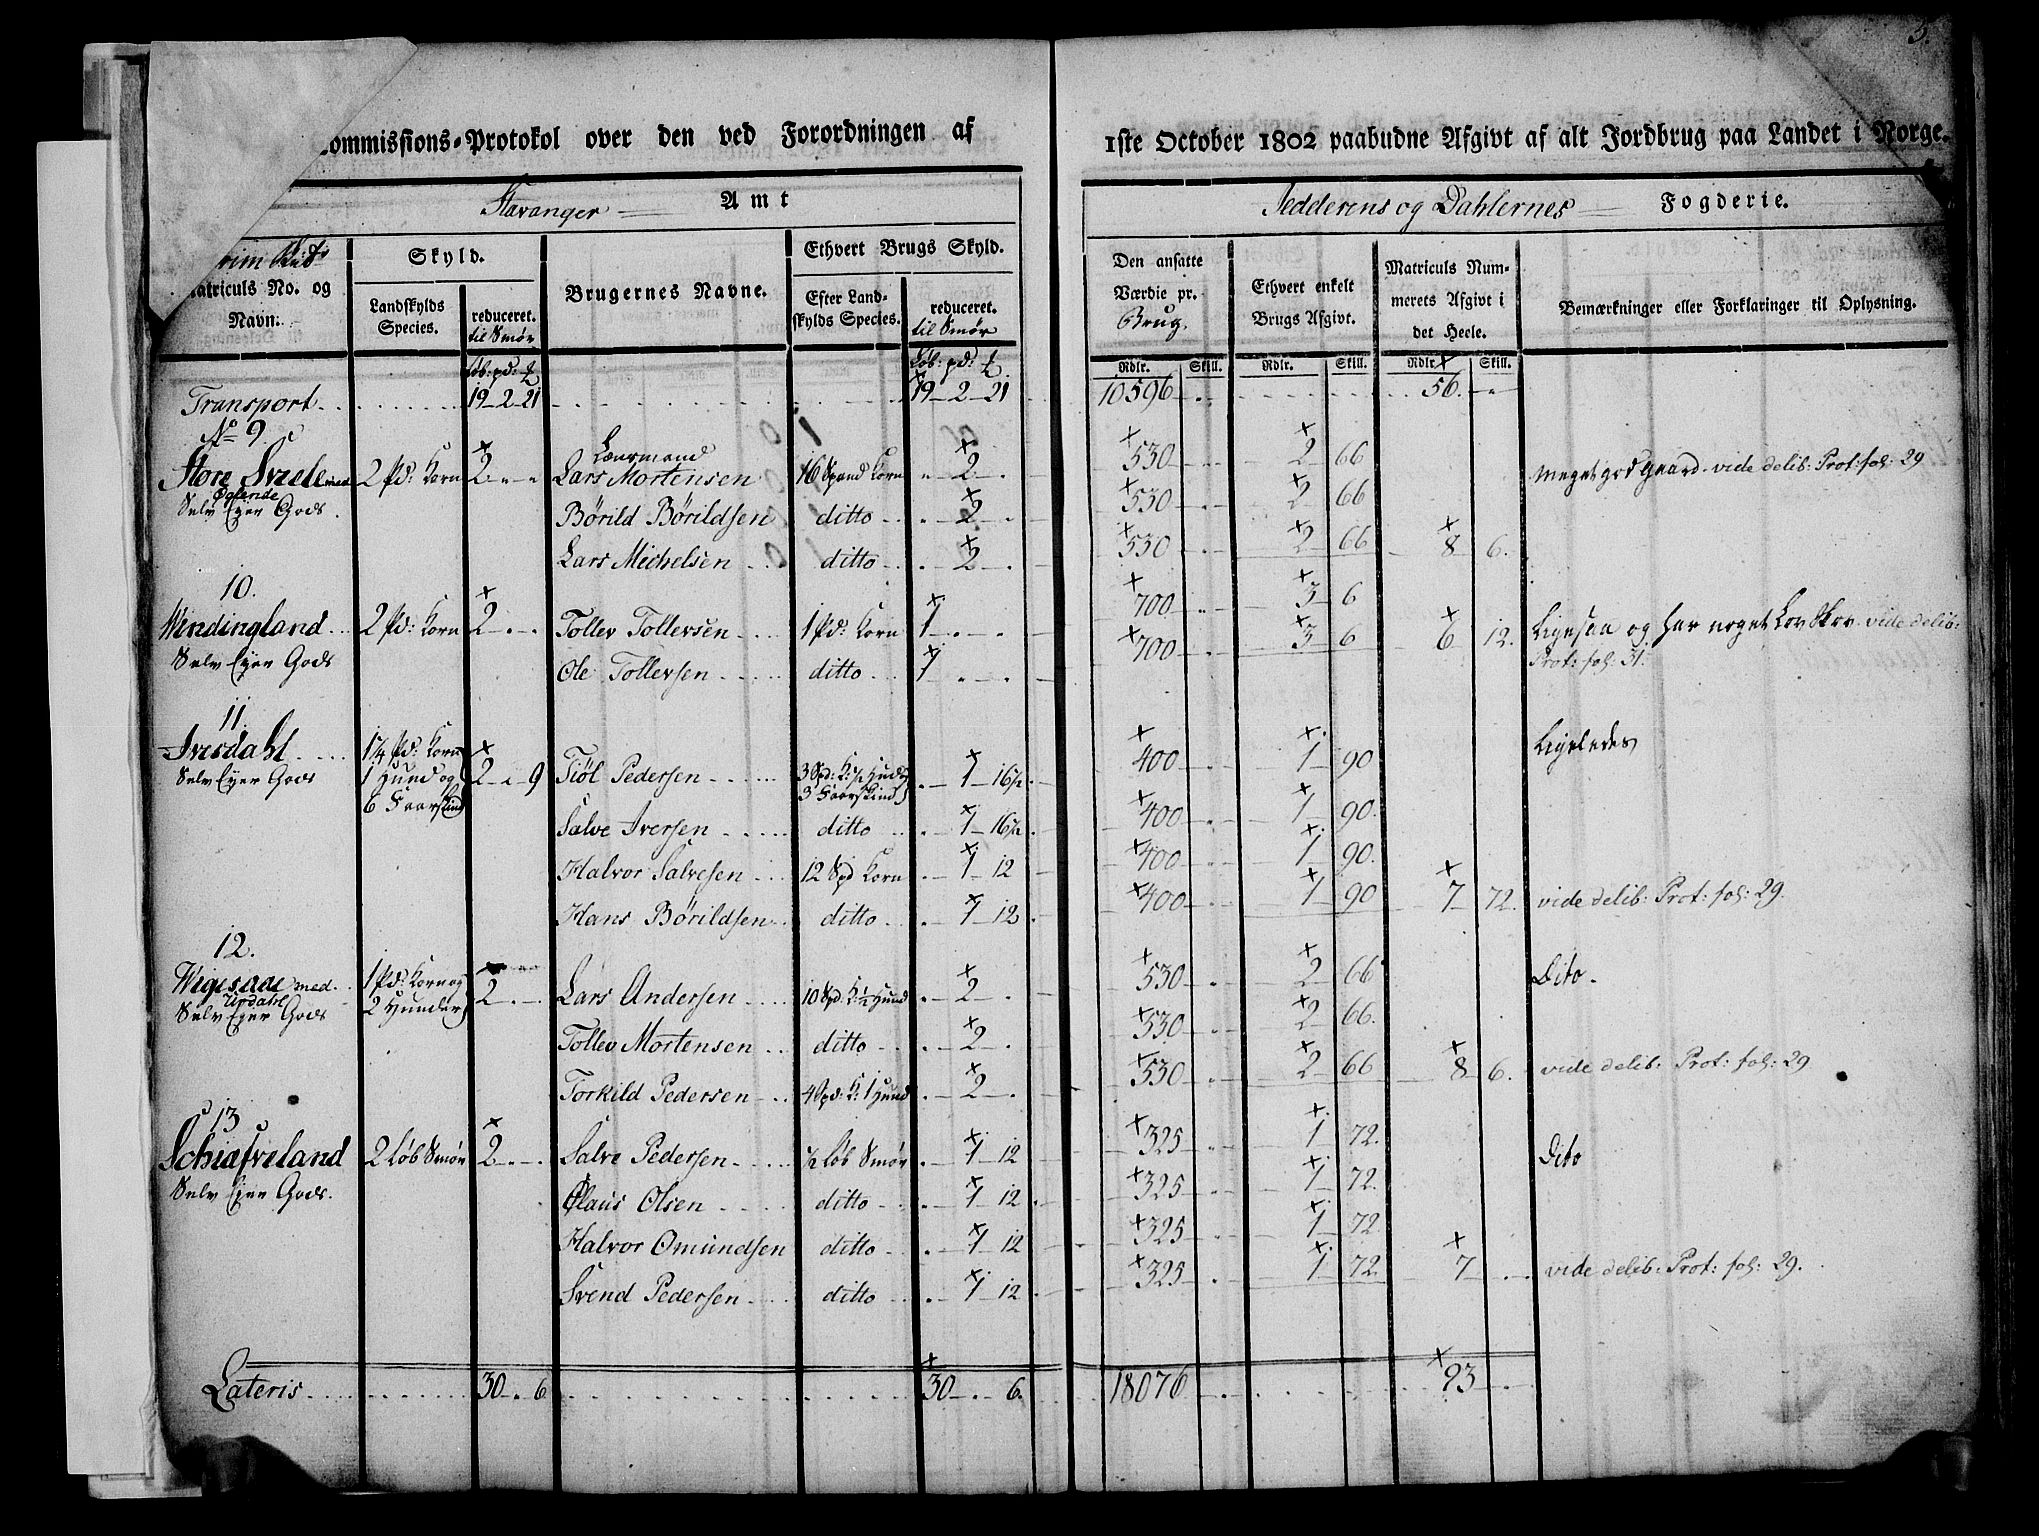 3.
ommissions-Protokol over den ved Forordningen af 1ste October 1802 paabudne Afgivt af alt Jordbrug paa Landet i Norge.
Stavanger Amt Jedderens og Dahlernes Fogderie.
Matriculs No. og Navn:
Skyld.
Landskylds Species.
reduceret. til Smör
Brugernes Navne.
Ethvert Brugs Skyld.
Efter Landskylds Species.
reduceret. til Smör
Den ansatte Værdie pr. Brug.
Ethvert enkelt Brugs Afgivt.
Matriculs Nummerets Afgivt i det Heele.
Bemærkninger eller Forklaringer til Oplysning.
Löb: pd: ℔ Löb: pd: ℔ Rdlr. Skill. Rdlr. Skill. Rdlr. Skill.
Transport 19-2-21 19-2-21 10596 56.
No 9.
Store Svele med 2 Pd: Korn 2 Lænsmand Lars Mortensen 16 Spand Korn 2 530 2 66 Meget god Gaard. vide delib: Prot: fol: 29
Øglende
Selv Eyer Gods. Börild Börildsen ditto 2 530 2 66
Lars Michelsen ditto 2 530 2 66 8 6.
10.
Windingland 2 Pd: Korn 2 Tollev Tollevsen 1 Pd: Korn 1 700 3 6 Ligesaa og har noget Lov Skov. vide delib:
Selv Eyer Gods Ole Tollevsen ditto 1 700 3 6 6 12. Prot: fol: 31.
11.
Ivesdahl 1¼ Pd: Korn 1 Hund og 6 Faarskind 2 9 Tiöl Pedersen 3 Spd: K: ½ Hud 3 Faarskind 1-16½ 400 1 90 Ligeledes
Selv Eyer Gods
Salve Iversen ditto 1-16½ 400 1 90.
Halvor Salvesen 12 Spd Korn 1 12 400 1 90.
Hans Börildsen ditto 1 12 400 1 90 7 72. vide delib: Prot: fol: 29.
12.
Wigesaae med 1 Pd: Korn og 2 Hunder 2 Lars Andersen 10 Spd: K: ½ Hund 2 530 2 66 Dito.
Urdahl
Selv Eyer Gods
Tollev Mortensen ditto 2 530 2 66.
Torkild Pedersen 4 Spd: K: 1 Hund 2 530 2 66 8 6. vide delib: Prot: fol: 29
13
Schiæveland 2 Löb Smör 2 Salve Pedersen ½ Löb Smör 1 12 325 1 72. Dito
Selv Eyer Gods. Claus Olsen ditto 1 12 325 1 72.
Halvor Omundsen ditto 1 12 325 1 72
Svend Pedersen ditto 1 12 325 1 72. 7 vide delib: Prot: fol: 29.
Lateris 30 6 30 6. 18076 93